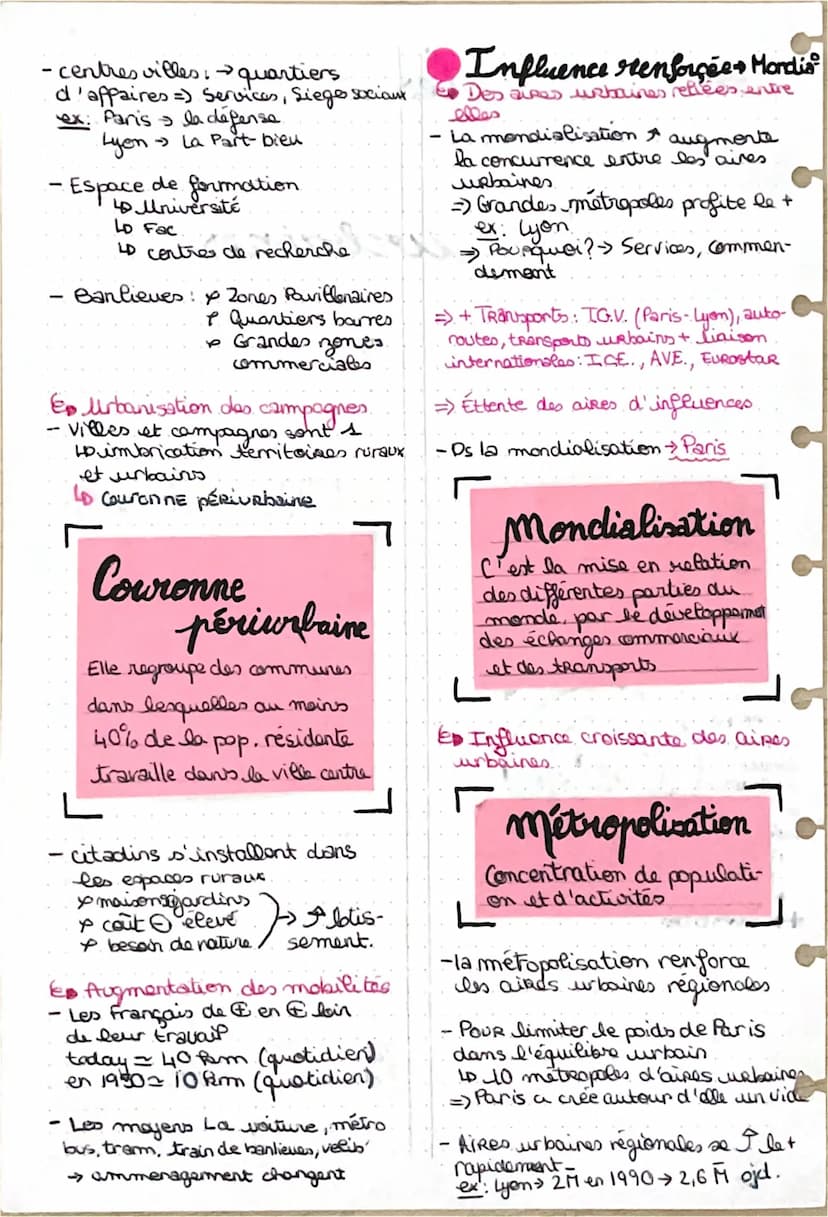 - centres villes : → quartiers
d'affaires => Services, Sieges sociaux
ex: Paris → la défense
Lyon → La Part-bieu
- Espace de formation
↳ Université
↳ Fac
↳ centres de recherche
- Banlieues : Zones Pavillonaires
Quartiers barres
Grandes zones
commerciales
Urbanisation des campagnes
- Villes et campagnes sont 1
↳ imbrication territoires ruraux
et urbains
↳ Couronne périurbaine
Couronne
périurbaine
Elle regroupe des communes
dans lesquelles au moins
40% de la pop. résidente
travaille dans la ville centre
- citadins s'installent dans
les espaces ruraux
maisons/jardins
coût ⊖ élevé → ↗ lotis-
besoin de nature sement.
Augmentation des mobilités
- Les Français de ⊕ en ⊕ loin
de leur travail
today ≃ 40 km (quotidien)
en 1950 ≃ 10 km (quotidien)
- Les moyens La voiture, métro
bus, tram, train de banlieues, velib'
→ ammenagement changent
Influence renforçée → Mondia°
Des aires urbaines reliées entre
elles
- La mondialisation ↗ augmente
la concurrence entre les aires
urbaines
=> Grandes métropoles profite le +
ex: Lyon
=> Pourquoi? → Services, commen-
dement
=> + Transports : T.G.V. (Paris-Lyon), auto-
routes, transports urbains + liaison
internationales : I.C.E., AVE., Eurostar
=> Éttente des aires d'influences
- Ds la mondialisation → Paris
Mondialisation
C'est la mise en relation
des différentes parties du
monde, par le développement
des échanges commerciaux
et des transports
Influence croissante des aires
urbaines
Métropolisation
Concentration de populati-
on et d'activités
- la métropolisation renforce
les aires urbaines régionales
- Pour limiter le poids de Paris
dans l'équilibre urbain
↳ 10 métropoles d'aires urbaines
=> Paris a crée autour d'elle un vide
- Aires urbaines régionales se ↑ le +
rapidement
ex: Lyon → 2M̄ en 1990 → 2,6 M̄ ojd.